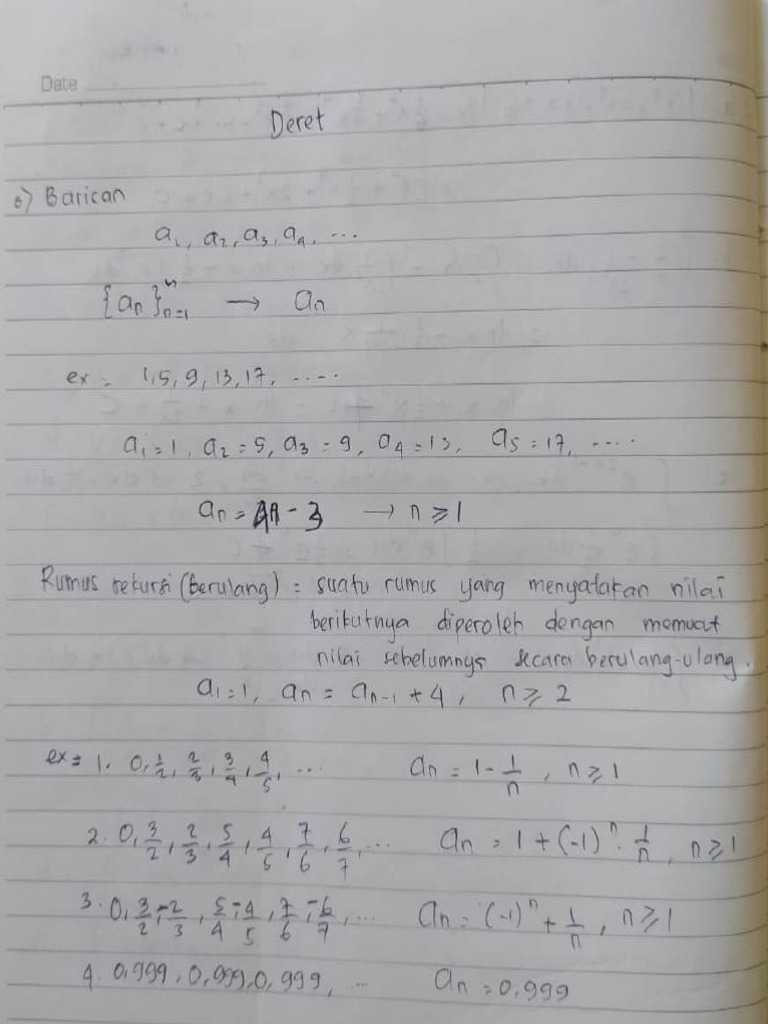 Date
Deret
o) Barisan
a₁, a₂, a₃, a₄, ...
{aₙ}ⁿₙ₌₁ → aₙ
ex = 1, 5, 9, 13, 17, .....
a₁ = 1, a₂ = 5, a₃ = 9, a₄ = 13, a₅ = 17, ....
aₙ = 4n - 3 → n ≥ 1
Rumus rekursi (berulang) = suatu rumus yang menyatakan nilai
berikutnya diperoleh dengan memuat
nilai sebelumnya secara berulang-ulang.
a₁ = 1, aₙ = aₙ₋₁ + 4, n ≥ 2
ex = 1. 0, 1/2, 2/3, 3/4, 4/5, ... aₙ = 1 - 1/n, n ≥ 1
2. 0, 3/2, 2/3, 5/4, 4/5, 7/6, 6/7, ... aₙ = 1 + (-1)ⁿ · 1/n, n ≥ 1
3. 0, 3/2, -2/3, 5/4, -4/5, 7/6, -6/7, ... aₙ = (-1)ⁿ + 1/n, n ≥ 1
4. 0,999, 0,999, 0,999, ... aₙ = 0,999